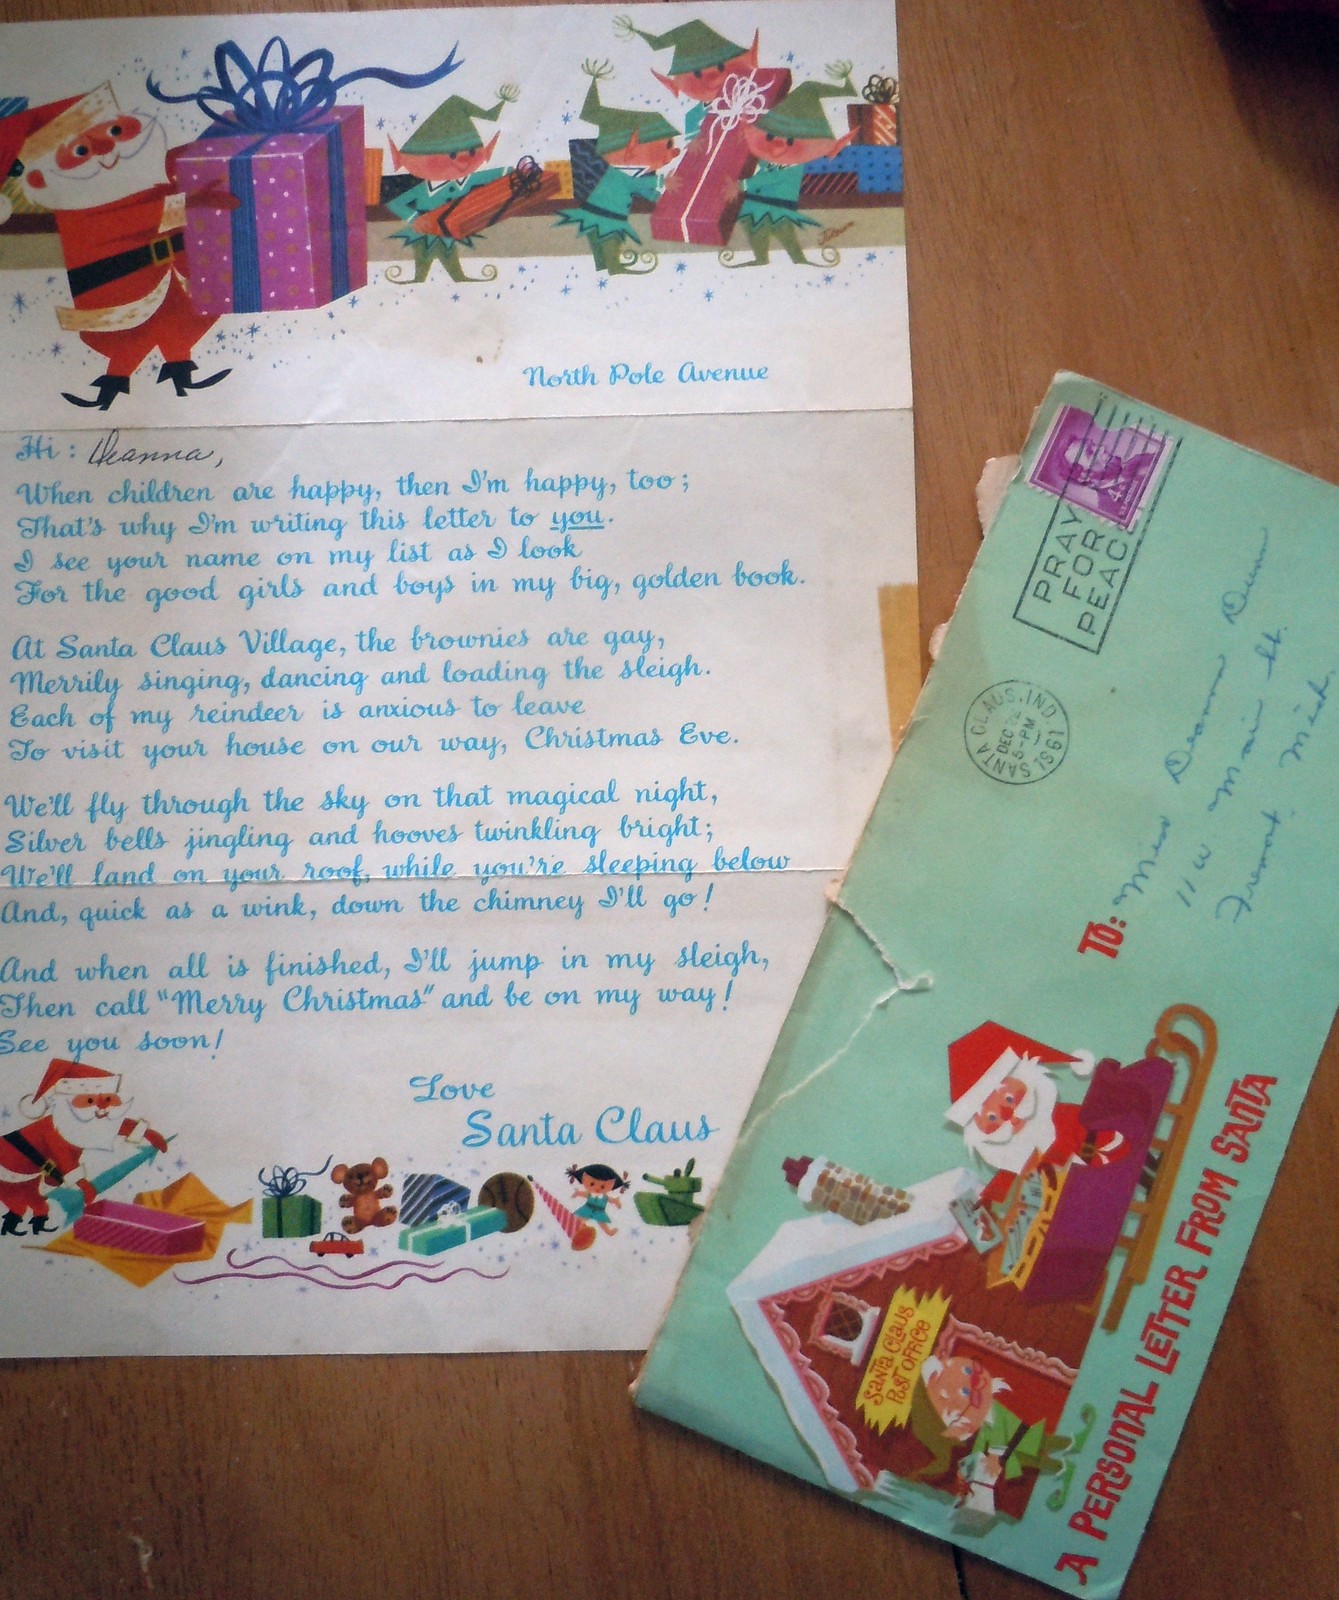 North Pole Avenue
Hi: Deanna,
When children are happy, then I'm happy, too;
That's why I'm writing this letter to you.
I see your name on my list as I look
For the good girls and boys in my big, golden book.
At Santa Claus Village, the brownies are gay,
Merrily singing, dancing and loading the sleigh.
Each of my reindeer is anxious to leave
To visit your house on our way, Christmas Eve.
We'll fly through the sky on that magical night,
Silver bells jingling and hooves twinkling bright;
We'll land on your roof, while you're sleeping below
And, quick as a wink, down the chimney I'll go!
And when all is finished, I'll jump in my sleigh,
Then call "Merry Christmas" and be on my way!
See you soon!
Love
Santa Claus
4¢
PRAY
FOR
PEACE
SANTA CLAUS, IND.
DEC 22
5-PM
1961
TO: Miss Deanna Dunn
11 W Main St.
Fremont Mich.
SANTA CLAUS
POST OFFICE
A PERSONAL LETTER FROM SANTA